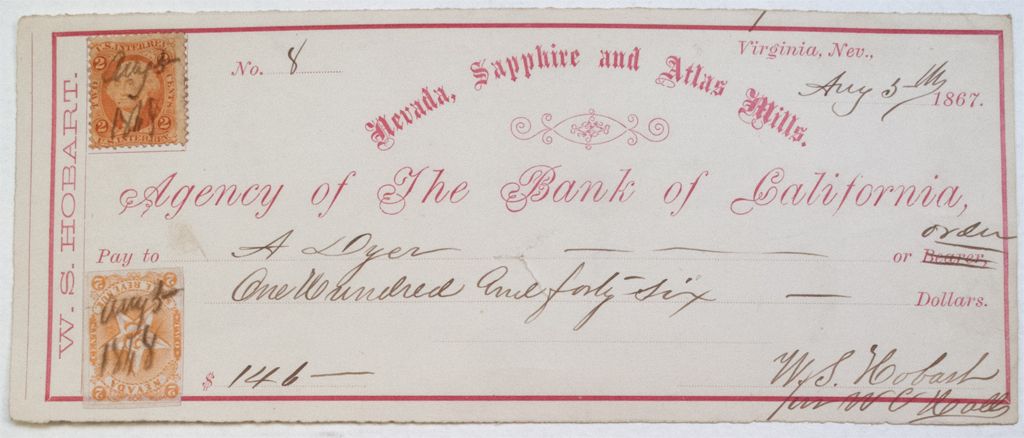 W. S. HOBART.
U.S. INTER. REV.
2 2
TWO CENTS
Aug 5
2 2
No. 8
Nevada, Sapphire and Atlas Mills.
Virginia, Nev.,
Aug 5th 1867.
Agency of The Bank of California,
Pay to A Dyer or Bearer, order
One Hundred and forty six Dollars.
$ 146
W. S. Hobart
per W C Hall
2 2
NEVADA
Aug 5
2 2